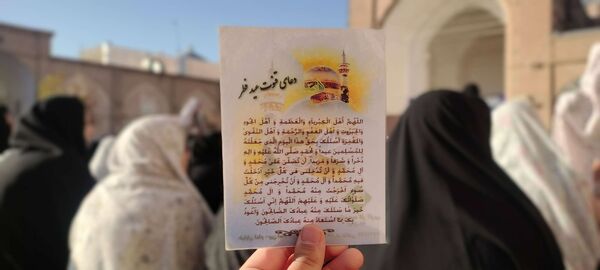 دعای قنوت عید فطر
اَللّهُمَّ اَهْلَ الْکِبْرِیاءِ وَالْعَظَمَةِ وَ اَهْلَ الْجُودِ
وَالْجَبَرُوتِ وَ اَهْلَ الْعَفْوِ وَالرَّحْمَةِ وَ اَهْلَ التَّقْوی
وَالْمَغْفِرَةِ اَسْئَلُکَ بِحَقِّ هذَا الْیَوْمِ الَّذی جَعَلْتَهُ
لِلْمُسْلِمینَ عیداً وَ لِمُحَمَّدٍ صَلَّی اللهُ عَلَیْهِ وَ الِهِ
ذُخْراً وَ شَرَفاً وَ مَزیداً، اَنْ تُصَلِّیَ عَلی مُحَمَّدٍ وَ
آلِ مُحَمَّدٍ وَ اَنْ تُدْخِلَنی فی کُلِّ خَیْرٍ اَدْخَلْتَ
فیهِ مُحَمَّداً وَ آلَ مُحَمَّدٍ وَ اَنْ تُخْرِجَنی مِنْ کُلِّ
سُوءٍ اَخْرَجْتَ مِنْهُ مُحَمَّداً وَ آلَ مُحَمَّدٍ
صَلَواتُکَ عَلَیْهِ وَ عَلَیْهِمْ اَللّهُمَّ اِنّی اَسْئَلُکَ
خَیْرَ ما سَئَلَکَ مِنْهُ عِبادُکَ الصّالِحُونَ وَ اَعُوذُ
بِکَ مِمَّا اسْتَعاذَ مِنْهُ عِبادُکَ الصّالِحُونَ